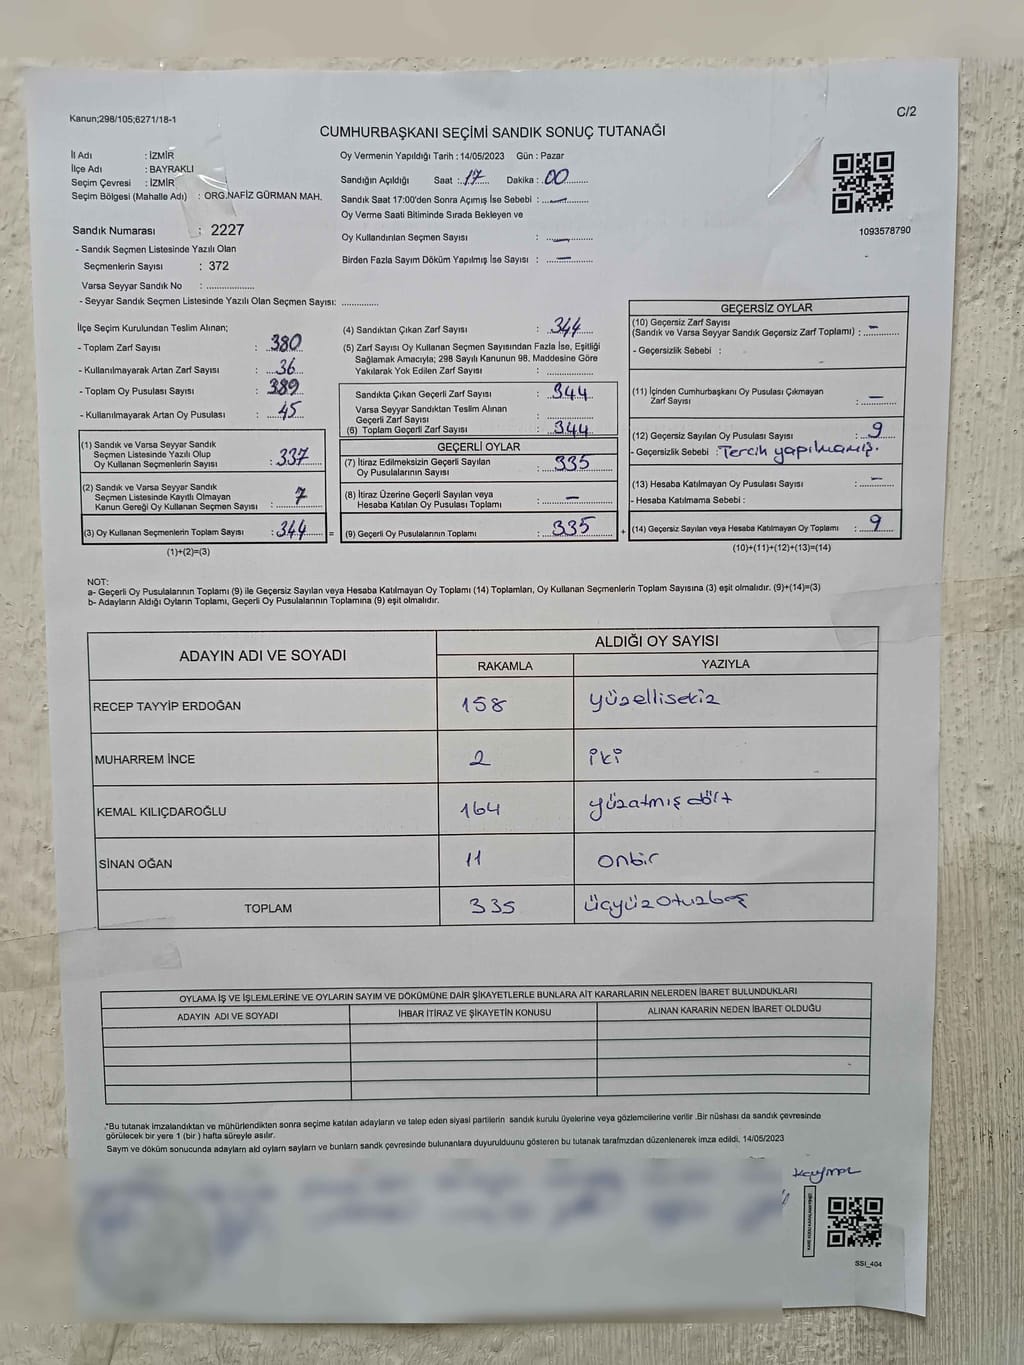 Kanun;298/105;6271/18-1
C/2
CUMHURBAŞKANI SEÇİMİ SANDIK SONUÇ TUTANAĞI
İl Adı : İZMİR
İlçe Adı : BAYRAKLI
Seçim Çevresi : İZMİR
Seçim Bölgesi (Mahalle Adı) : ORG.NAFİZ GÜRMAN MAH.
Sandık Numarası : 2227
- Sandık Seçmen Listesinde Yazılı Olan
Seçmenlerin Sayısı : 372
Varsa Seyyar Sandık No : ..................
- Seyyar Sandık Seçmen Listesinde Yazılı Olan Seçmen Sayısı: .............
Oy Vermenin Yapıldığı Tarih : 14/05/2023 Gün : Pazar
Sandığın Açıldığı Saat : 17 Dakika : 00
Sandık Saat 17:00'den Sonra Açımış İse Sebebi : —
Oy Verme Saati Bitiminde Sırada Bekleyen ve
Oy Kullandırılan Seçmen Sayısı : —
Birden Fazla Sayım Döküm Yapılmış İse Sayısı : —
1093578790
İlçe Seçim Kurulundan Teslim Alınan;
- Toplam Zarf Sayısı : 380
- Kullanılmayarak Artan Zarf Sayısı : 36
- Toplam Oy Pusulası Sayısı : 389
- Kullanılmayarak Artan Oy Pusulası : 45
(1) Sandık ve Varsa Seyyar Sandık
Seçmen Listesinde Yazılı Olup
Oy Kullanan Seçmenlerin Sayısı : 337
(2) Sandık ve Varsa Seyyar Sandık
Seçmen Listesinde Kayıtlı Olmayan
Kanun Gereği Oy Kullanan Seçmen Sayısı : 7
(3) Oy Kullanan Seçmenlerin Toplam Sayısı : 344 =
(1)+(2)=(3)
(4) Sandıktan Çıkan Zarf Sayısı : 344
(5) Zarf Sayısı Oy Kullanan Seçmen Sayısından Fazla İse, Eşitliği
Sağlamak Amacıyla; 298 Sayılı Kanunun 98. Maddesine Göre
Yakılarak Yok Edilen Zarf Sayısı : .............
Sandıkta Çıkan Geçerli Zarf Sayısı : 344
Varsa Seyyar Sandıktan Teslim Alınan
Geçerli Zarf Sayısı : .............
(6) Toplam Geçerli Zarf Sayısı : 344
GEÇERLİ OYLAR
(7) İtiraz Edilmeksizin Geçerli Sayılan
Oy Pusulalarının Sayısı : 335
(8) İtiraz Üzerine Geçerli Sayılan veya
Hesaba Katılan Oy Pusulası Toplamı : —
(9) Geçerli Oy Pusulalarının Toplamı : 335 +
GEÇERSİZ OYLAR
(10) Geçersiz Zarf Sayısı
(Sandık ve Varsa Seyyar Sandık Geçersiz Zarf Toplamı) : —
- Geçersizlik Sebebi :
(11) İçinden Cumhurbaşkanı Oy Pusulası Çıkmayan
Zarf Sayısı : —
(12) Geçersiz Sayılan Oy Pusulası Sayısı : 9
- Geçersizlik Sebebi : Tercih yapılmamış.
(13) Hesaba Katılmayan Oy Pusulası Sayısı : —
- Hesaba Katılmama Sebebi :
(14) Geçersiz Sayılan veya Hesaba Katılmayan Oy Toplamı : 9
(10)+(11)+(12)+(13)=(14)
NOT:
a- Geçerli Oy Pusulalarının Toplamı (9) ile Geçersiz Sayılan veya Hesaba Katılmayan Oy Toplamı (14) Toplamları, Oy Kullanan Seçmenlerin Toplam Sayısına (3) eşit olmalıdır. (9)+(14)=(3)
b- Adayların Aldığı Oyların Toplamı, Geçerli Oy Pusulalarının Toplamına (9) eşit olmalıdır.
ADAYIN ADI VE SOYADI
ALDIĞI OY SAYISI
RAKAMLA YAZIYLA
RECEP TAYYİP ERDOĞAN 158 yüzellisekiz
MUHARREM İNCE 2 iki
KEMAL KILIÇDAROĞLU 164 yüzatmış dört
SİNAN OĞAN 11 onbir
TOPLAM 335 üçyüzotuzbeş
OYLAMA İŞ VE İŞLEMLERİNE VE OYLARIN SAYIM VE DÖKÜMÜNE DAİR ŞİKAYETLERLE BUNLARA AİT KARARLARIN NELERDEN İBARET BULUNDUKLARI
ADAYIN ADI VE SOYADI İHBAR İTİRAZ VE ŞİKAYETİN KONUSU ALINAN KARARIN NEDEN İBARET OLDUĞU
*Bu tutanak imzalandıktan ve mühürlendikten sonra seçime katılan adayların ve talep eden siyasi partilerin sandık kurulu üyelerine veya gözlemcilerine verilir .Bir nüshası da sandık çevresinde
görülecek bir yere 1 (bir ) hafta süreyle asılır.
Saym ve döküm sonucunda adayların ald oyların saylarn ve bunların sandk çevresinde bulunanlara duyurulduunu gösteren bu tutanak tarafmzdan düzenlenerek imza edildi, 14/05/2023
SSİ_404